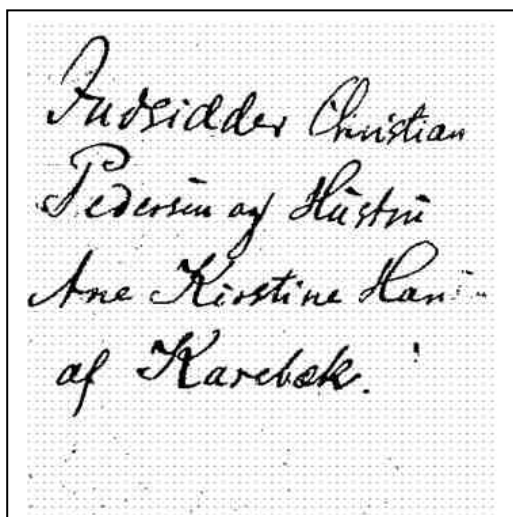 Indsidder Christian
Pedersen og Hustru
Ane Kirstine
af Karebæk.